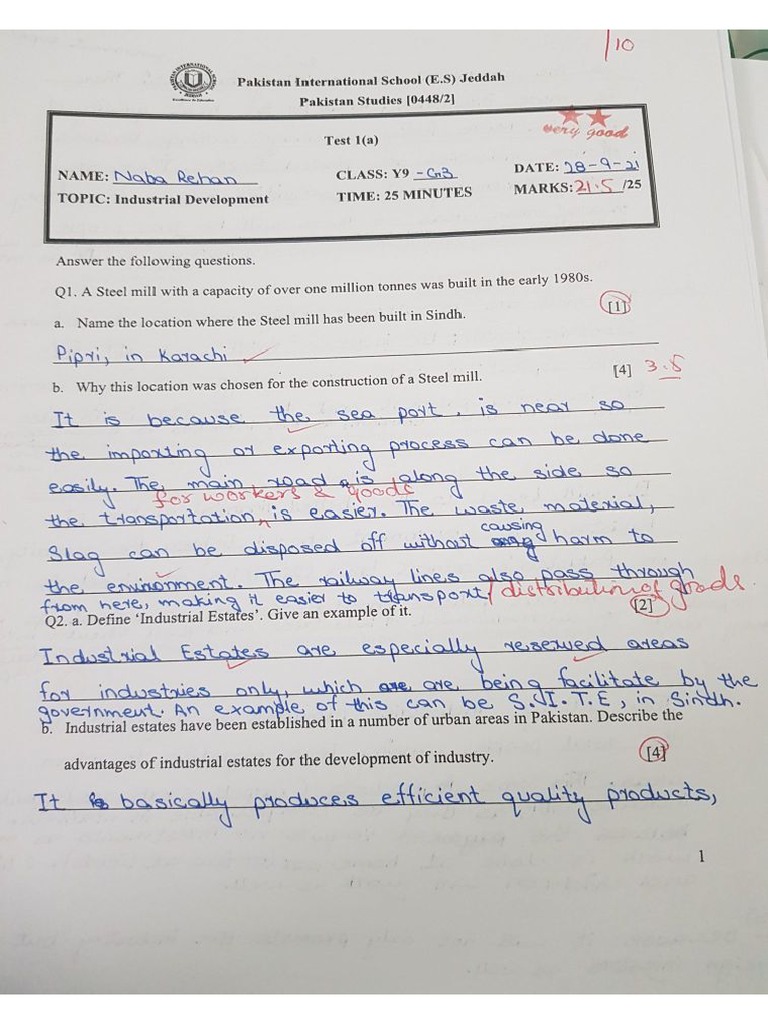 /10
Pakistan International School (E.S) Jeddah
Pakistan Studies [0448/2]
Test 1(a)
very good
NAME: Naba Rehan CLASS: Y9 - GB DATE: 28-9-21
TOPIC: Industrial Development TIME: 25 MINUTES MARKS: 21.5 /25
Answer the following questions.
Q1. A Steel mill with a capacity of over one million tonnes was built in the early 1980s.
a. Name the location where the Steel mill has been built in Sindh. [1]
Pipri, in Karachi
b. Why this location was chosen for the construction of a Steel mill. [4] 3.5
It is because the sea port, is near so
the importing or exporting process can be done
easily. The main road is along the side so
for workers & goods
the transportation is easier. The waste material,
causing
Slag can be disposed off without harm to
the environment. The railway lines also pass through
from here, making it easier to transport / distribution of goods.
Q2. a. Define 'Industrial Estates'. Give an example of it. [2]
Industrial Estates are especially reserved areas
for industries only, which are are being facilitate by the
government. An example of this can be S.I.T.E, in Sindh.
b. Industrial estates have been established in a number of urban areas in Pakistan. Describe the
advantages of industrial estates for the development of industry. [4]
It basically produces efficient quality products,
1